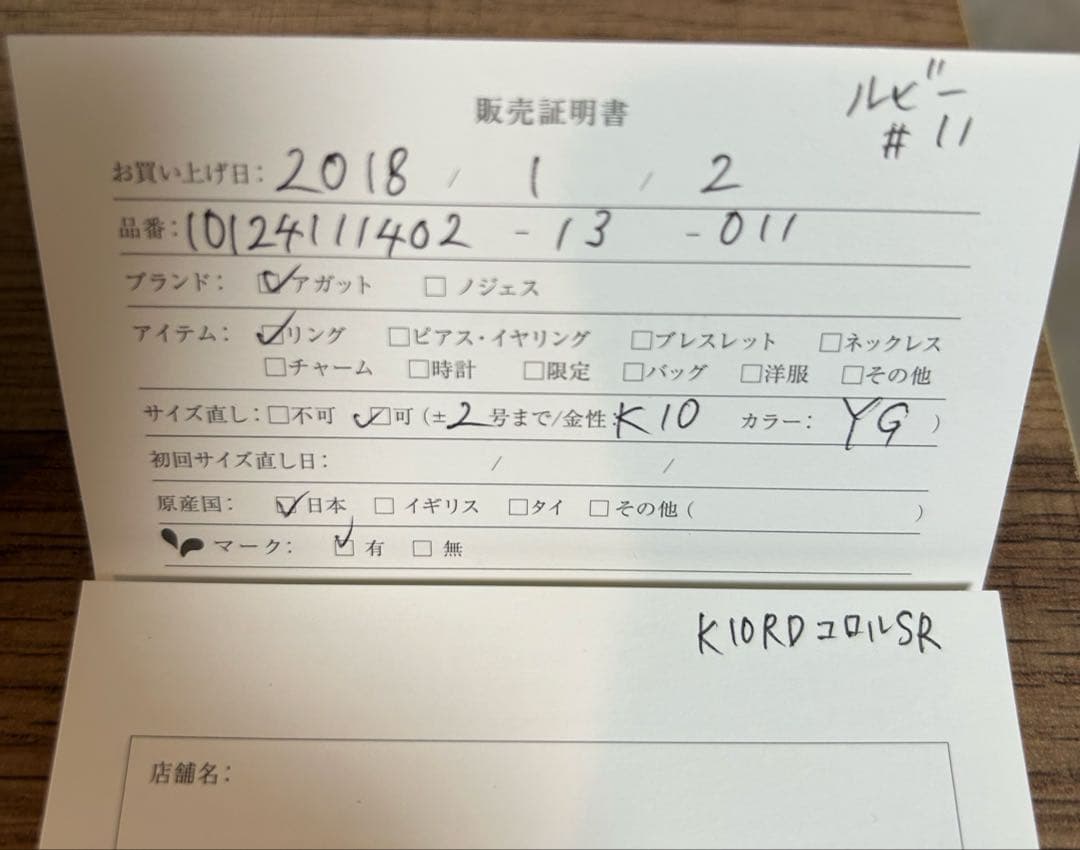 ルビー
#11
販売証明書
お買い上げ日: 2018 / 1 / 2
品番: 10124111402 - 13 - 011
ブランド: ☑アガット □ ノジェス
アイテム: ☑リング □ピアス・イヤリング □ブレスレット □ネックレス
□チャーム □時計 □限定 □バッグ □洋服 □その他
サイズ直し: □不可 ☑可 (±2号まで/金性:K10 カラー: YG )
初回サイズ直し日: / /
原産国: ☑日本 □ イギリス □タイ □その他 ( )
マーク: ☑ 有 □ 無
K10RDコロルSR
店舗名: